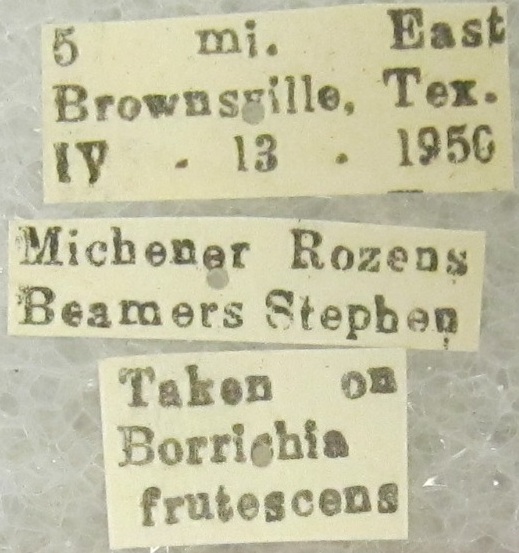 5 mi. East
Brownsville, Tex.
IV - 13 . 1950
Michener Rozens
Beamers Stephen
Taken on
Borrichia
frutescens